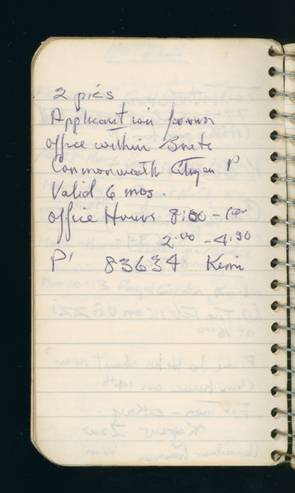 2 pics
Applicant in person
Office within
Commonwealth Citizen P
Valid 6 mos.
Office Hours 8:00 -
2:00 - 4:30
P' 83634